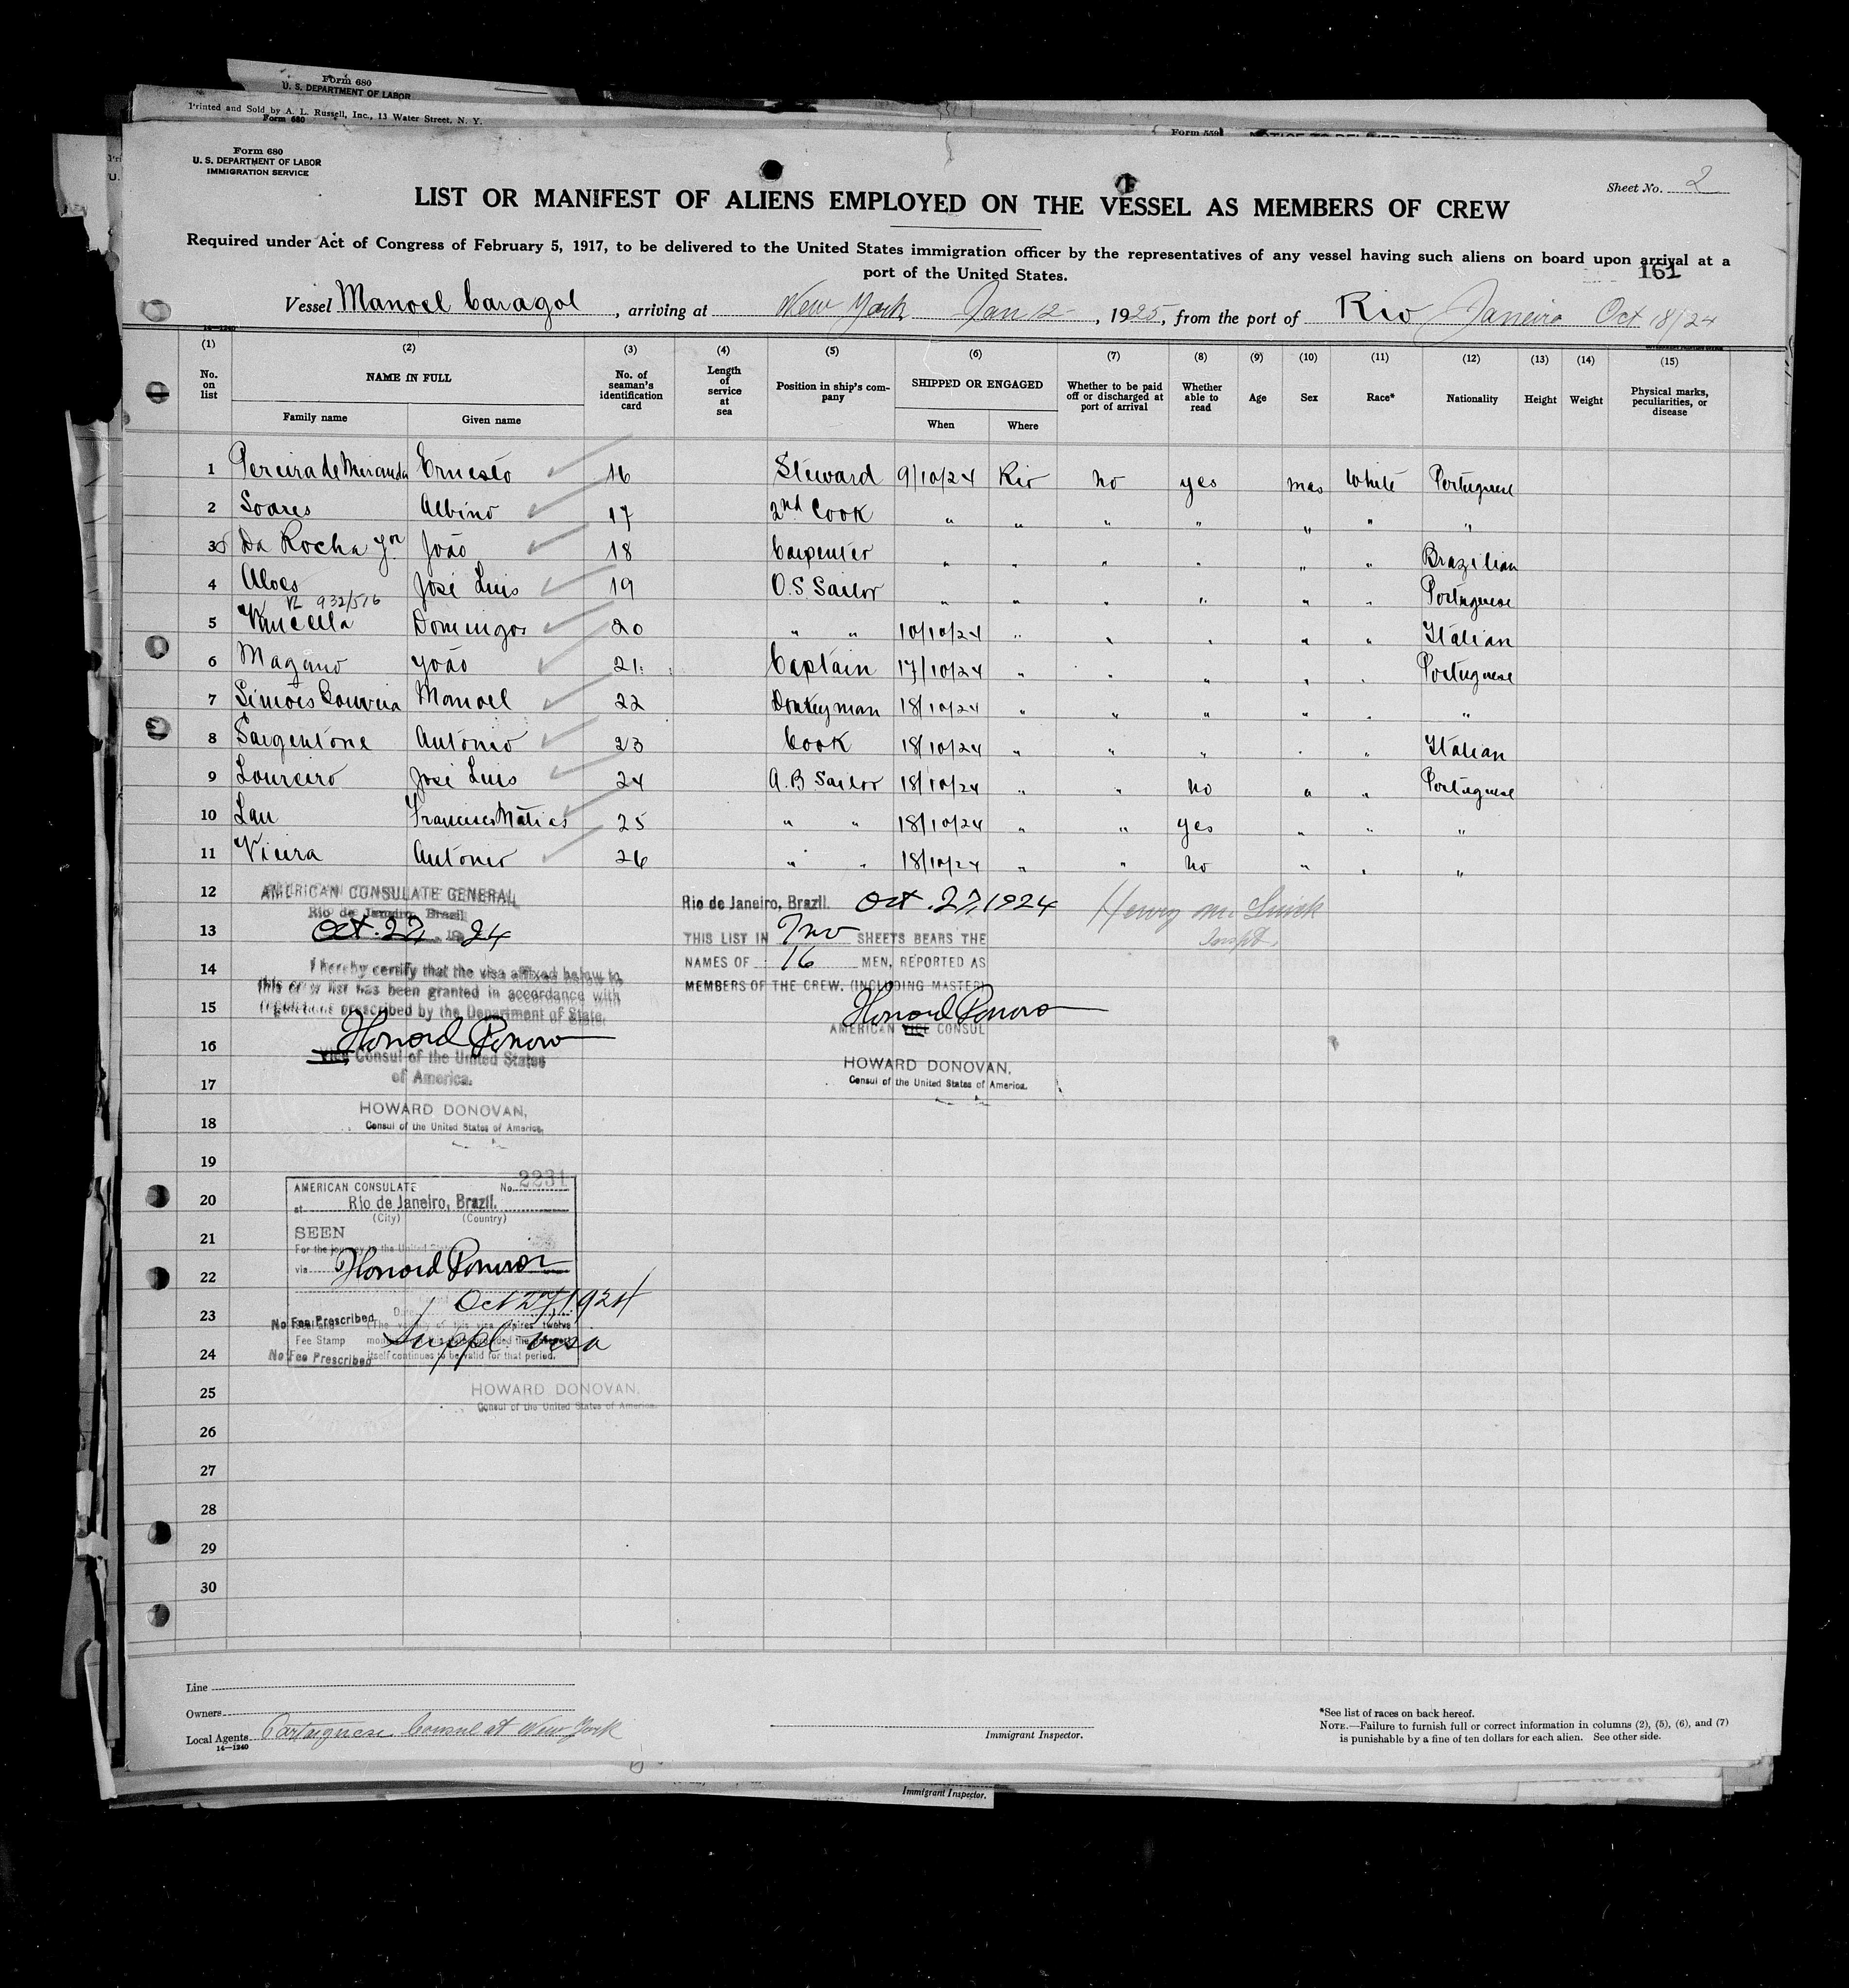 Form 680
U. S. DEPARTMENT OF LABOR
Printed and Sold by A. L. Russell, Inc., 13 Water Street, N. Y.
Form 680
Form 680
U. S. DEPARTMENT OF LABOR
IMMIGRATION SERVICE
Sheet No. 2
LIST OR MANIFEST OF ALIENS EMPLOYED ON THE VESSEL AS MEMBERS OF CREW
Required under Act of Congress of February 5, 1917, to be delivered to the United States immigration officer by the representatives of any vessel having such aliens on board upon arrival at a
port of the United States.
161
Vessel Manoel Caragol, arriving at New York Jan 12, 1925, from the port of Rio Janeiro Oct 18/24
14—1240
(1) (2) (3) (4) (5) (6) (7) (8) (9) (10) (11) (12) (13) (14) (15)
No. on list NAME IN FULL Family name Given name No. of seaman's identification card Length of service at sea Position in ship's company SHIPPED OR ENGAGED When Where Whether to be paid off or discharged at port of arrival Whether able to read Age Sex Race* Nationality Height Weight Physical marks, peculiarities, or disease
1 Pereira de Miranda Ernesto 16 Steward 9/10/24 Rio no yes mas White Portuguese
2 Soares Albino 17 2nd Cook " " " " " " "
3 Da Rocha Jor João 18 Carpenter " " " " " " Brazilian
4 Alves José Luis 19 O.S Sailor " " " " " " Portuguese
932/516
5 Domingos 20 " " 10/10/24 " " " " " Italian
6 Magano João 21 Captain 17/10/24 " " " " " Portuguese
7 Simões Gouveia Manoel 22 Donkeyman 18/10/24 " " " " " "
8 Sargentone Antonio 23 Cook 18/10/24 " " " " " Italian
9 Loureiro José Luis 24 A.B Sailor 18/10/24 " " no " " Portuguese
10 Lau Francisco Matias 25 " " 18/10/24 " " yes " " "
11 Vieira Antonio 26 " " 18/10/24 " " no " " "
12
13
14
15
16
17
18
19
20
21
22
23
24
25
26
27
28
29
30
AMERICAN CONSULATE GENERAL
Rio de Janeiro, Brazil
Oct. 27, 1924
I hereby certify that the visa affixed below to
this crew list has been granted in accordance with
regulations prescribed by the Department of State.
Howard Donovan
Vice Consul of the United States
of America.
HOWARD DONOVAN,
Consul of the United States of America.
Rio de Janeiro, Brazil. Oct. 27, 1924
THIS LIST IN Two SHEETS BEARS THE
NAMES OF 16 MEN, REPORTED AS
MEMBERS OF THE CREW. (INCLUDING MASTER)
Howard Donovan
AMERICAN VICE CONSUL
HOWARD DONOVAN,
Consul of the United States of America.
Henry
Inspt.
AMERICAN CONSULATE No. 2231
at Rio de Janeiro, Brazil.
(City) (Country)
SEEN
For the journey to the United States
via Howard Donovan
Date Oct 27, 1924
No Fee Prescribed
(The validity of this visa expires twelve
Fee Stamp
Suppl. visa
No Fee Prescribed
itself continues to be valid for that period.
HOWARD DONOVAN,
Consul of the United States of America.
Line
Owners
Local Agents Portuguese Consul at New York
14—1240
Immigrant Inspector.
*See list of races on back hereof.
NOTE.—Failure to furnish full or correct information in columns (2), (5), (6), and (7)
is punishable by a fine of ten dollars for each alien. See other side.
Immigrant Inspector.